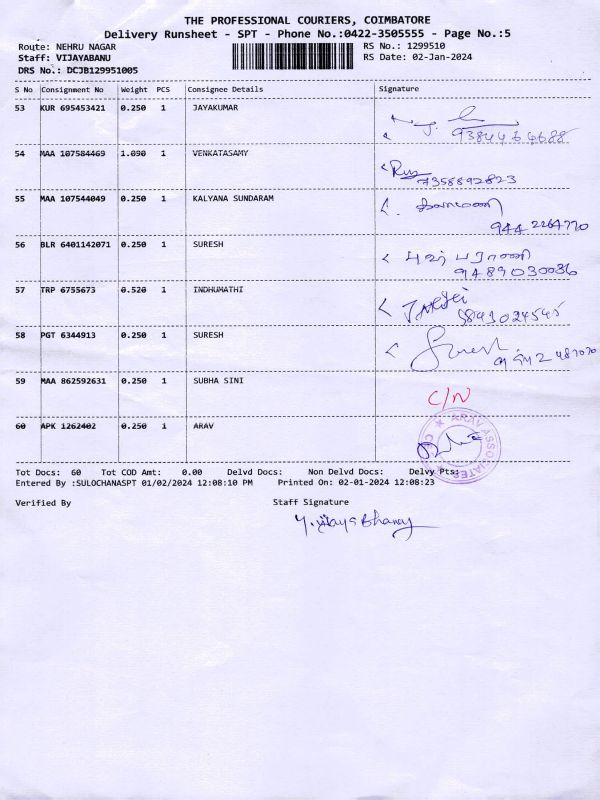 THE PROFESSIONAL COURIERS, COIMBATORE
Delivery Runsheet - SPT - Phone No.:0422-3505555 - Page No.:5
Route: NEHRU NAGAR RS No.: 1299510
Staff: VIJAYABANU RS Date: 02-Jan-2024
DRS No.: DCJB129951005
S No Consignment No Weight PCS Consignee Details Signature
53 KUR 695453421 0.250 1 JAYAKUMAR
9384464688
54 MAA 107584469 1.090 1 VENKATASAMY
7358892823
55 MAA 107544049 0.250 1 KALYANA SUNDARAM
944 2264770
56 BLR 6401142071 0.250 1 SURESH
9489030036
57 TRP 6755673 0.520 1 INDHUMATHI
58 PGT 6344913 0.250 1 SURESH
Suresh
59 MAA 862592631 0.250 1 SUBHA SINI
C/N
60 APK 1262402 0.250 1 ARAV
ARAV ASSOCIATES
Tot Docs: 60 Tot COD Amt: 0.00 Delvd Docs: Non Delvd Docs: Delvy Pts:
Entered By :SULOCHANASPT 01/02/2024 12:08:10 PM Printed On: 02-01-2024 12:08:23
Verified By Staff Signature